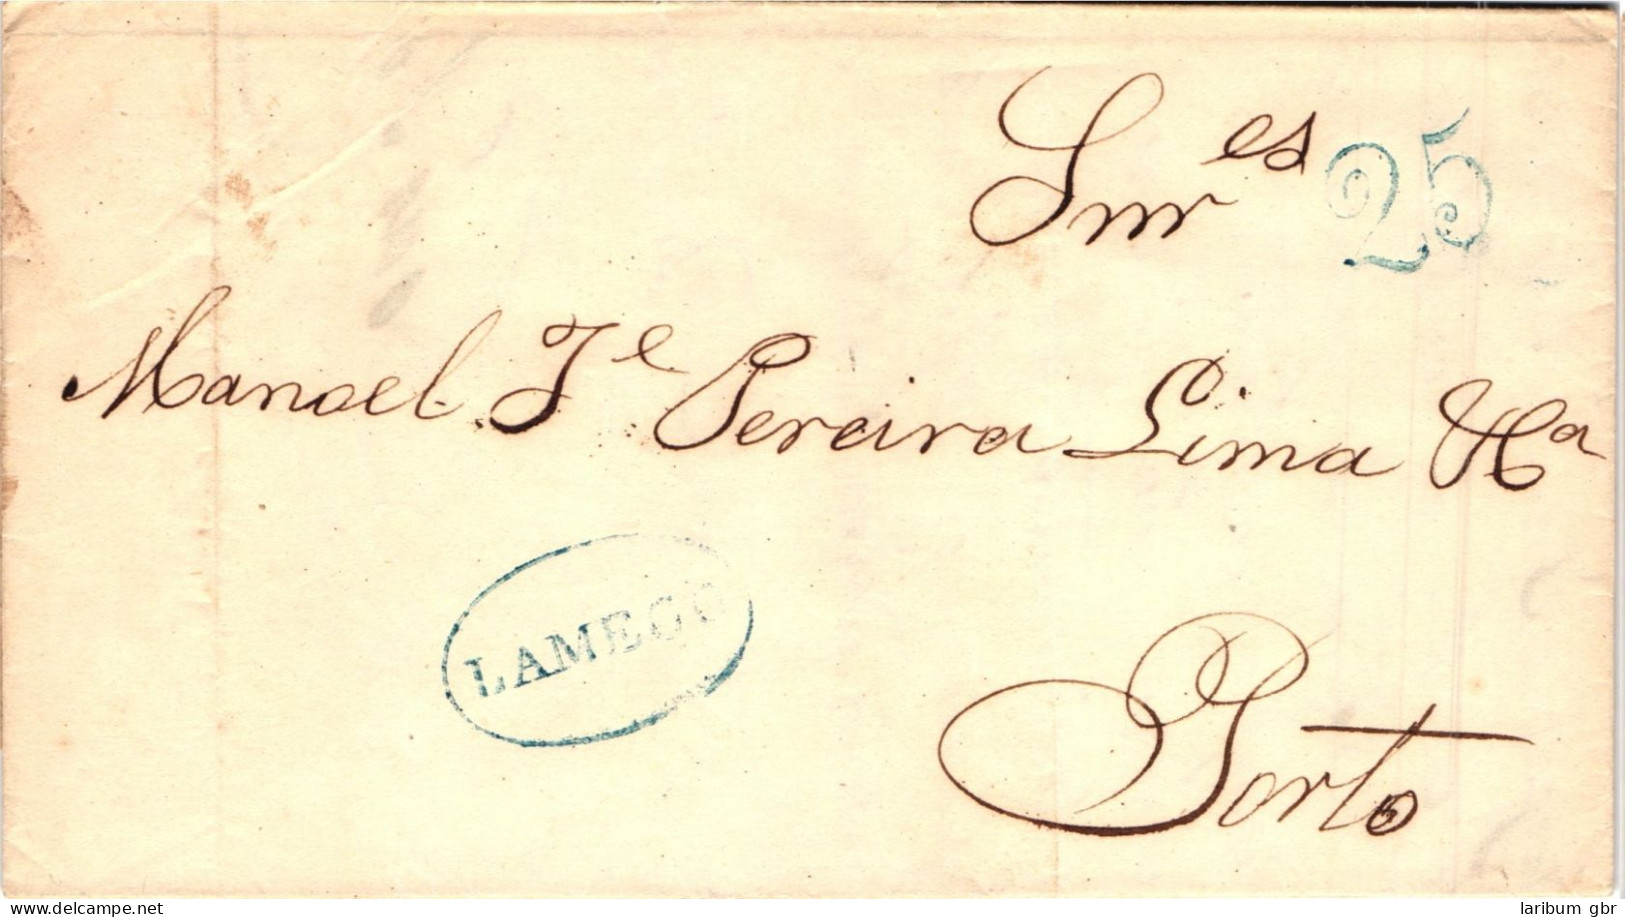 Snr.es 25
Manoel Je Pereira Lima
LAMEGO
Porto
www.delcampe.net
laribum gbr